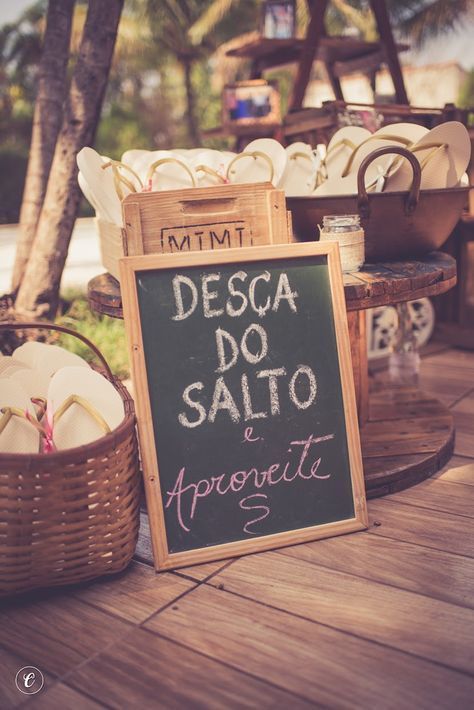 MIMI
DESÇA
DO
SALTO
e
Aproveite